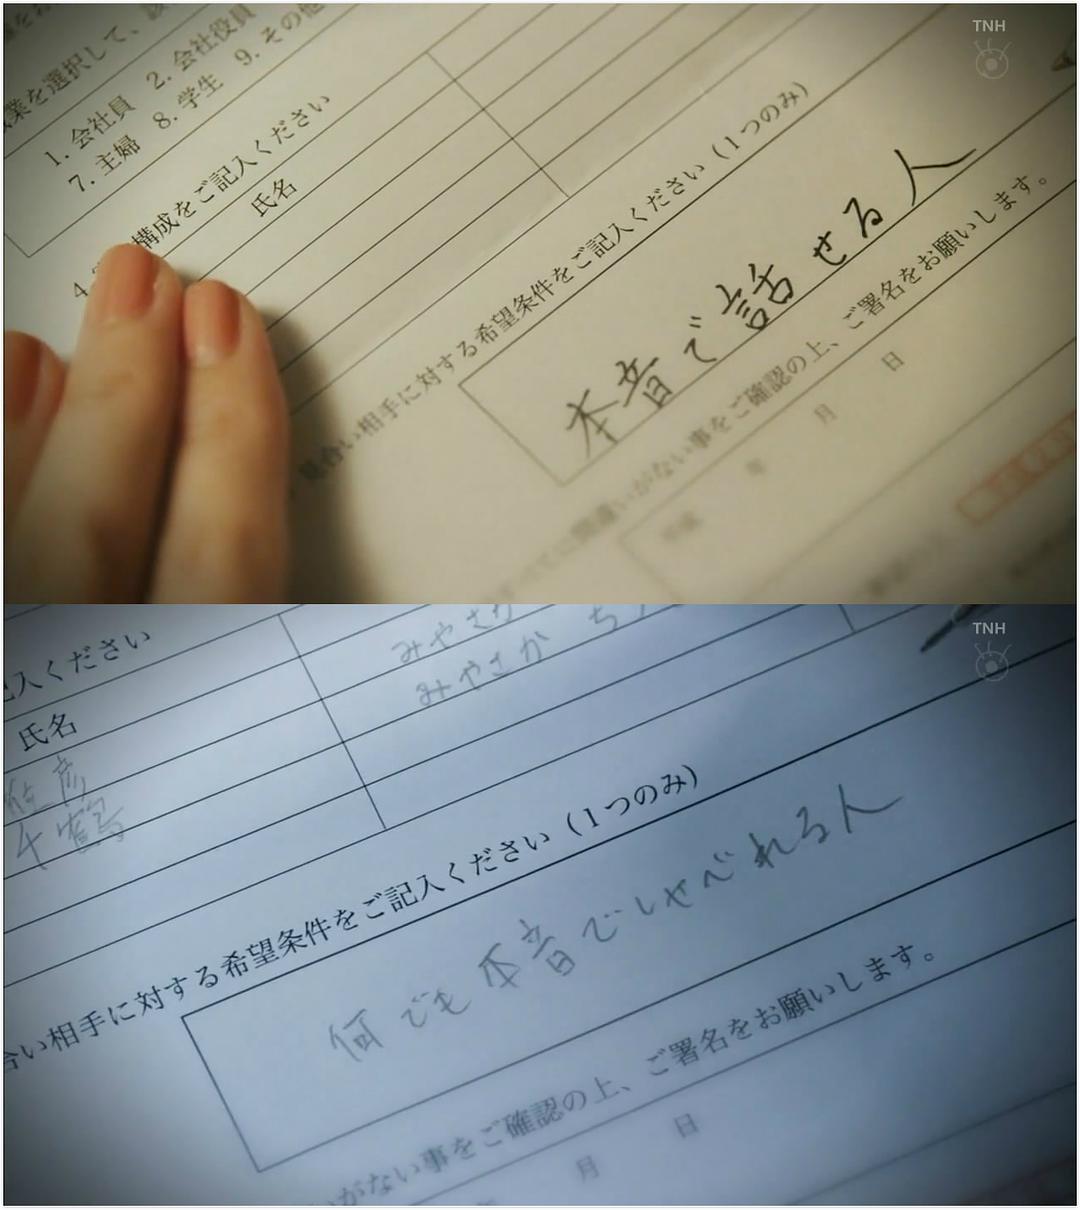 TNH
業を選択して、
1. 会社員 2. 会社役員
7. 主婦 8. 学生 9. その他
構成をご記入ください
氏名
見合い相手に対する希望条件をご記入ください（1つのみ）
本音で話せる人
間違いがない事をご確認の上、ご署名をお願いします。
年 月 日
TNH
記入ください
氏名
みやさか
みやさか ち
彦
千鶴
合い相手に対する希望条件をご記入ください（1つのみ）
何でも本音でしゃべれる人
がない事をご確認の上、ご署名をお願いします。
月 日